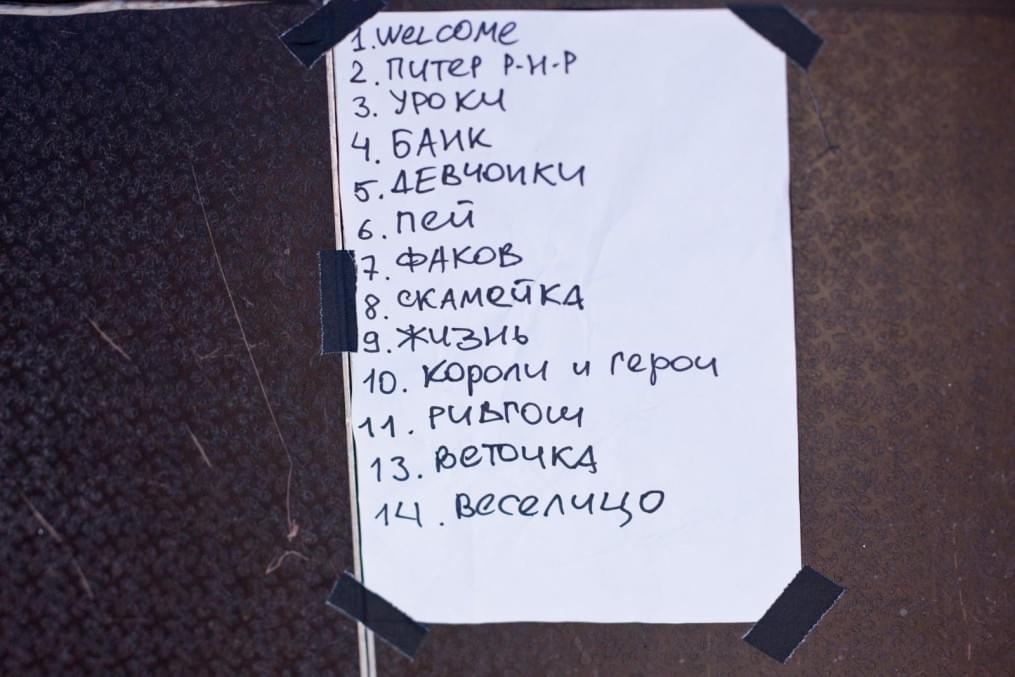 1. WELCOME
2. ПИТЕР Р-Н-Р
3. УРОКИ
4. БАИК
5. ДЕВЧОНКИ
6. ПЕЙ
7. ФАКОВ
8. СКАМЕЙКА
9. ЖИЗНЬ
10. Короли и герои
11. РИВГОШ
13. ВЕТОЧКА
14. ВЕСЕЛИЦО